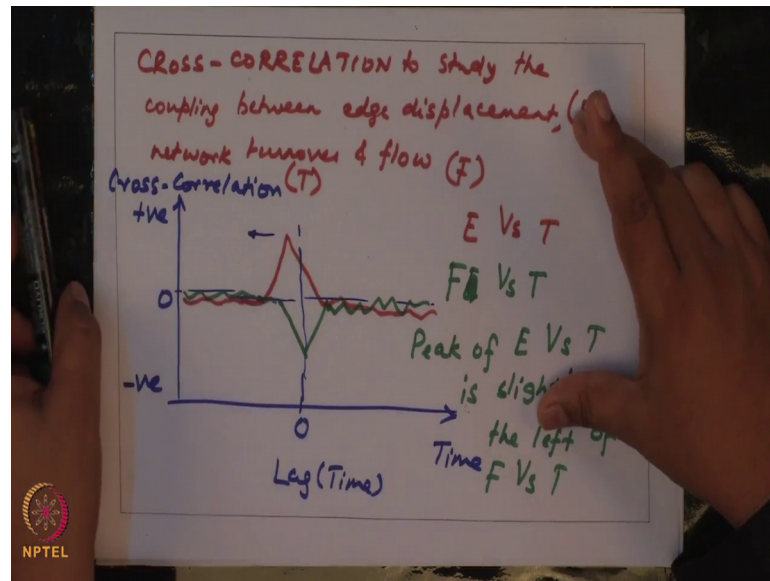 CROSS-CORRELATION to study the
coupling between edge displacement, (
network turnover & flow (F)
(T)
Cross-Correlation
+ve
0
-ve
0
Lag (Time)
Time
E Vs T
F Vs T
Peak of E Vs T
is
the left of
F Vs T
NPTEL